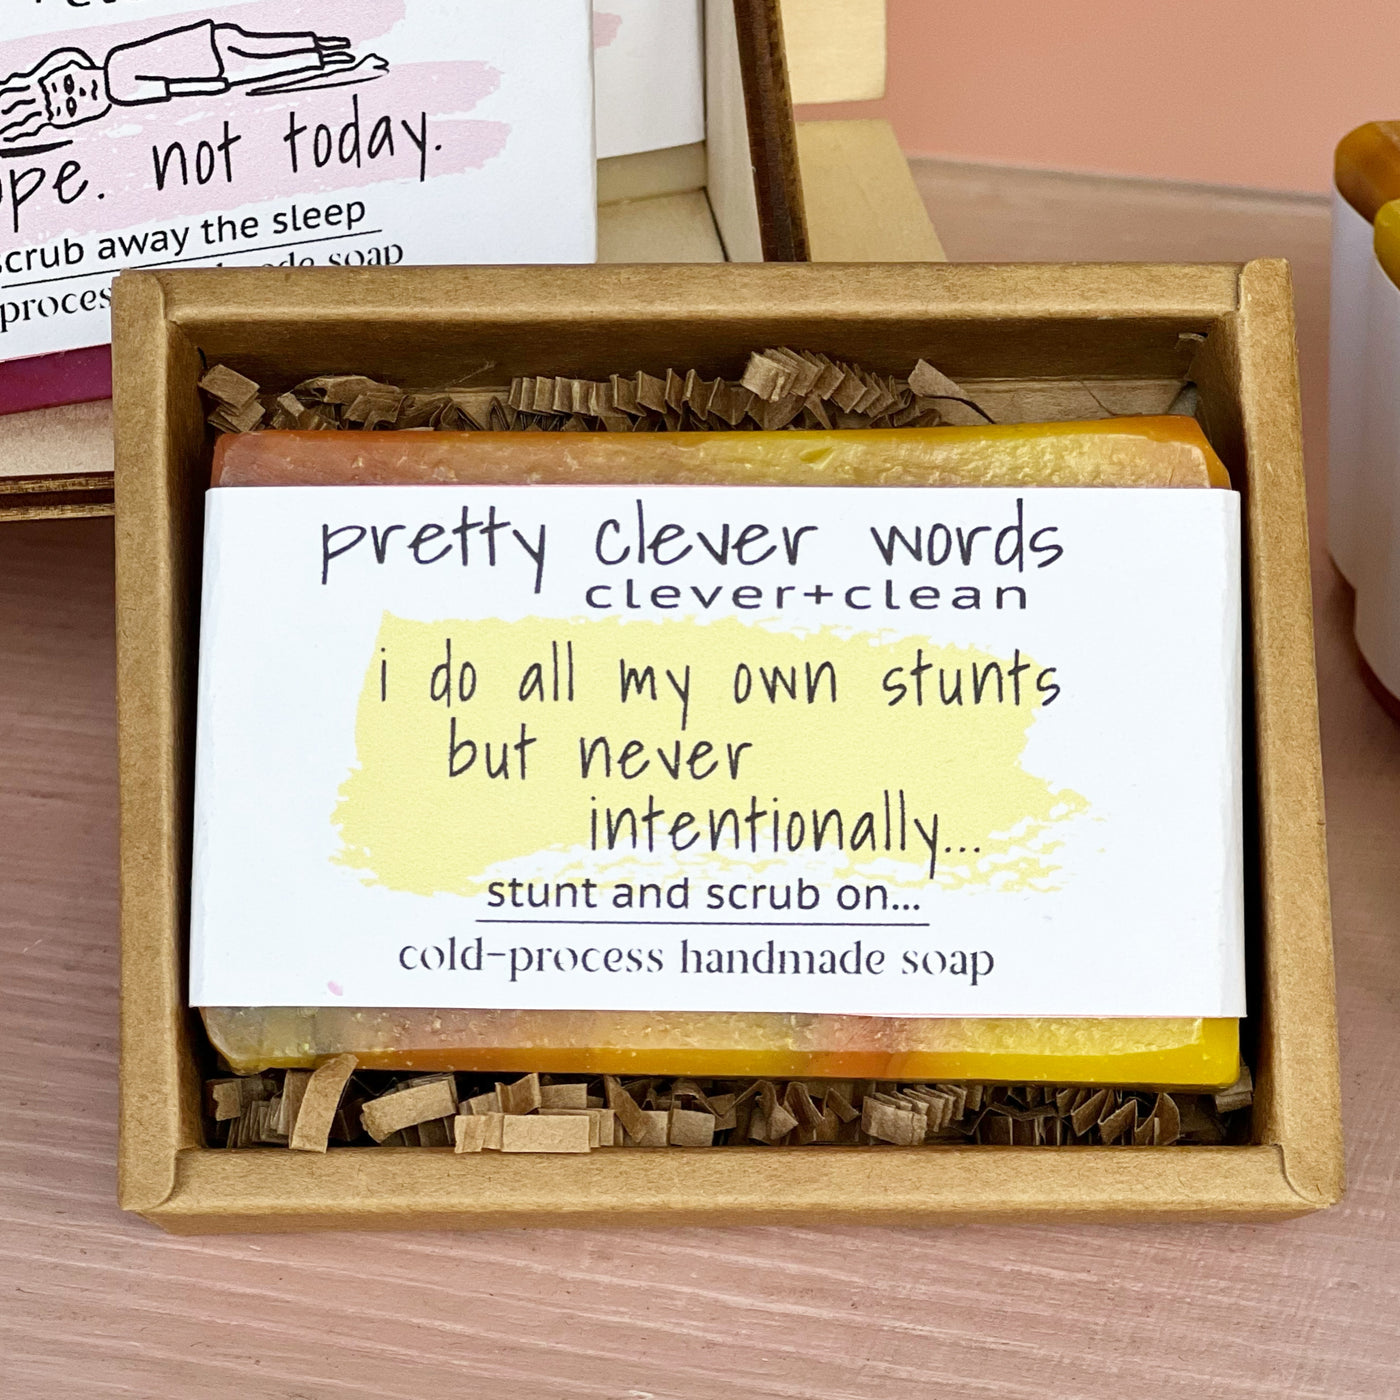 not today.
scrub away the sleep
soap
pretty clever words
clever+clean
i do all my own stunts
but never
intentionally...
stunt and scrub on...
cold-process handmade soap